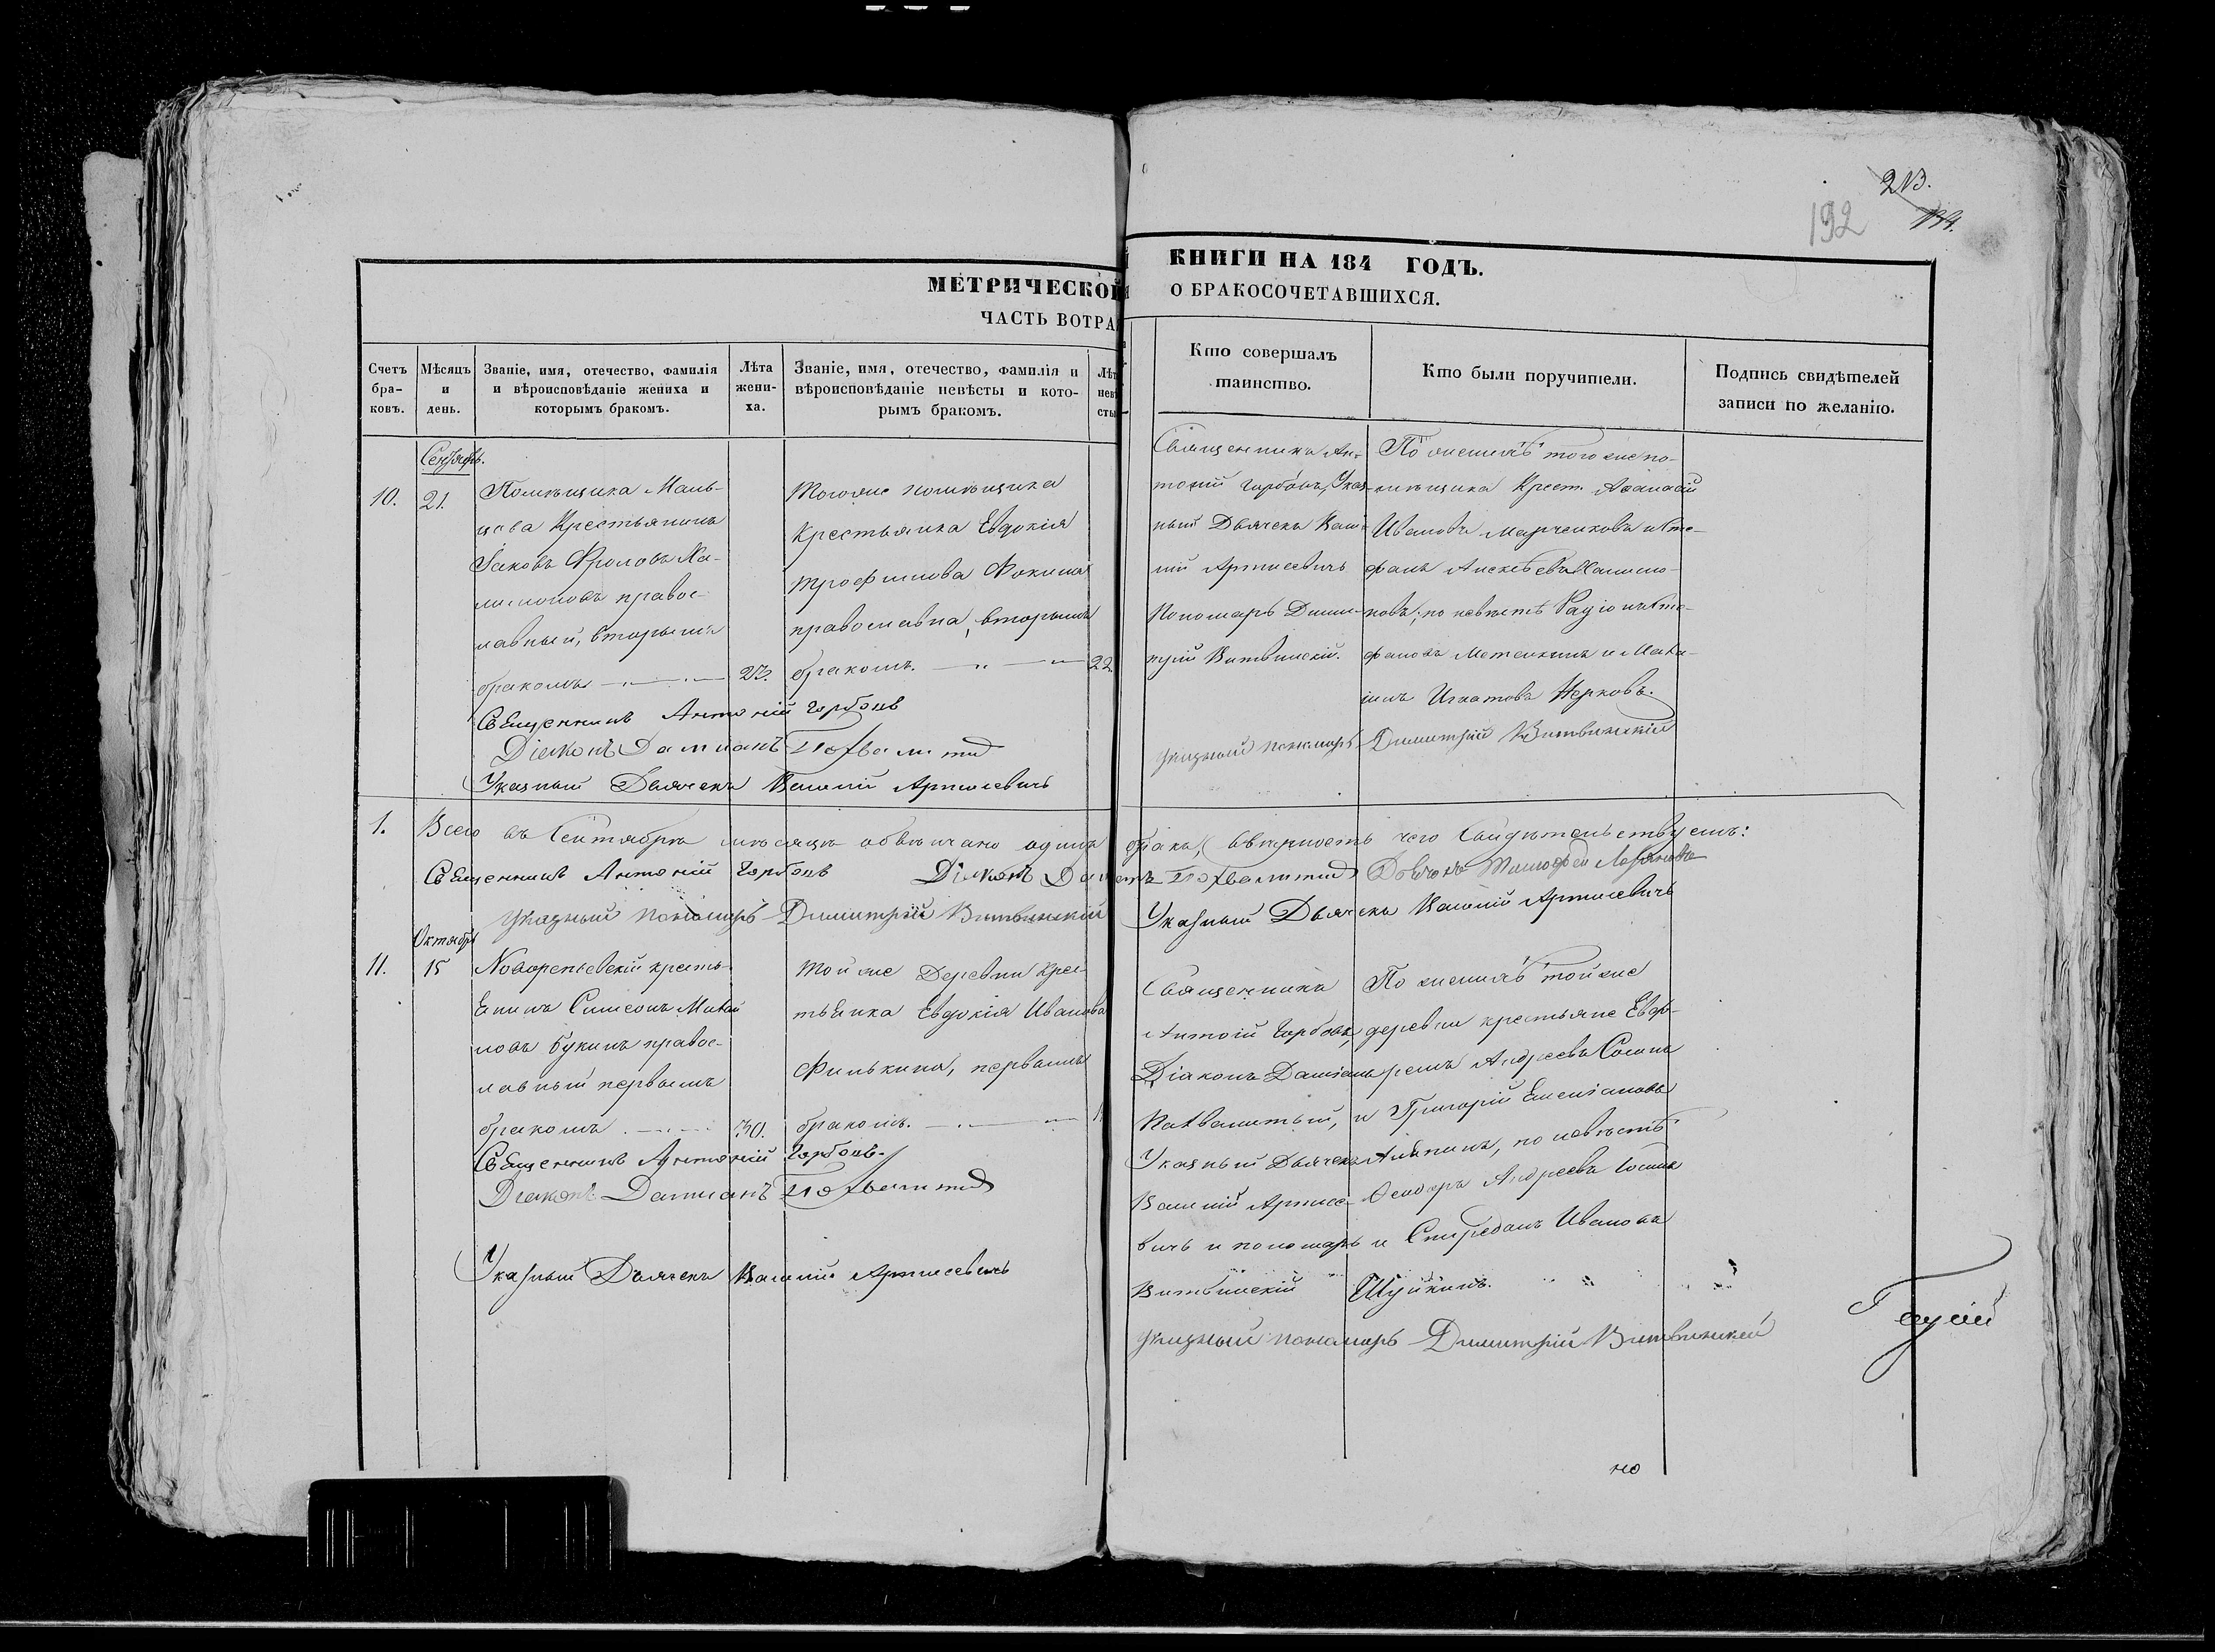 213.
192
МЕТРИЧЕСКОЙ КНИГИ НА 184 ГОДЪ.
ЧАСТЬ ВТОРАЯ О БРАКОСОЧЕТАВШИХСЯ.
Счетъ браковъ.
Мѣсяцъ и день.
Званіе, имя, отечество, фамилія
и вѣроисповѣданіе жениха и
которымъ бракомъ.
Лѣта
жени-
ха.
Званіе, имя, отечество, фамилія и
вѣроисповѣданіе невѣсты и кото-
рымъ бракомъ.
Кто совершалъ
таинство.
Кто были поручители.
Подпись свидѣтелей
записи по желанію.
Сентябрь.
10.
21.
Помѣщика Маль-
цова Крестьянинъ
Іаковъ Фроловъ
правос-
лавный, вторымъ
бракомъ
23.
Тогоже помѣщика
Крестьянка Евдокія
Трофимова Фокина
православна, вторымъ
бракомъ.
22.
Священникъ Ан-
тоній Горбовъ, Указ-
ный Дьячекъ
ній Артисевичь
Пономарь Дими-
трій Витвинскій.
По женихѣ тогоже по-
мѣщика Крест. Афанасій
Ивановъ Марченковъ и Сте-
фанъ Алексѣевъ
новъ; по невѣстѣ Родіонъ Сте-
фановъ Метелкинъ и
Игнатовъ Жерковъ.
Священникъ Антоній Горбовъ
Діаконъ Даміанъ Похвалитый
Указный Дьячекъ Артисевичь
Указный пономарь Димитрій Витвинскій
1.
Всего въ Сентябрѣ мѣсяцѣ обвѣнчано одинъ бракъ, въ вѣрности чего Свидѣтельствуемъ:
Священникъ Антоній Горбовъ Діаконъ Даміанъ Похвалитый
Указный пономарь Димитрій Витвинскій Указный Дьячекъ Артисевичь
Октябрь
11.
15
крестья-
нинъ Симеонъ Михаи-
ловъ Букинъ правос-
лавный первымъ
бракомъ
30.
Тойже Деревни Крес-
тьянка Евдокія Иванова
Филькина, первымъ
бракомъ.
Священникъ
Антоній Горбовъ,
Діаконъ Даміанъ
Похвалитый,
Указный Дьячекъ
Артисе-
вичь и пономарь
Витвинскій
По женихѣ тойже
деревни крестьяне Евф-
ремъ Андреевъ Соминъ
и Григорій Емеліановъ
по невѣстѣ
Андреевъ
и Спиридонъ Ивановъ
Шуйкинъ.
Священникъ Антоній Горбовъ.
Діаконъ Даміанъ Похвалитый
Указный Дьячекъ Артисевичь
Указный пономарь Димитрій Витвинскій
но